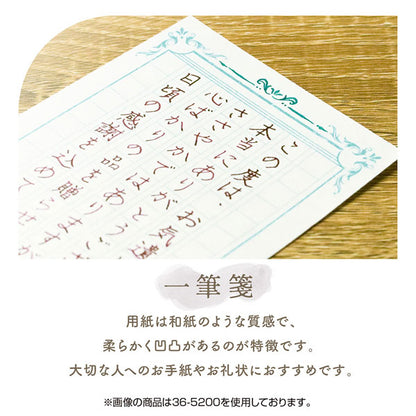 この度は、お気遣
本当にありがとうござい
ささやかではありますが
心ばかりの品を贈らせ
日頃の感謝を込めて
一筆箋
用紙は和紙のような質感で、
柔らかく凹凸があるのが特徴です。
大切な人へのお手紙やお礼状におすすめです。
※画像の商品は36-5200を使用しております。